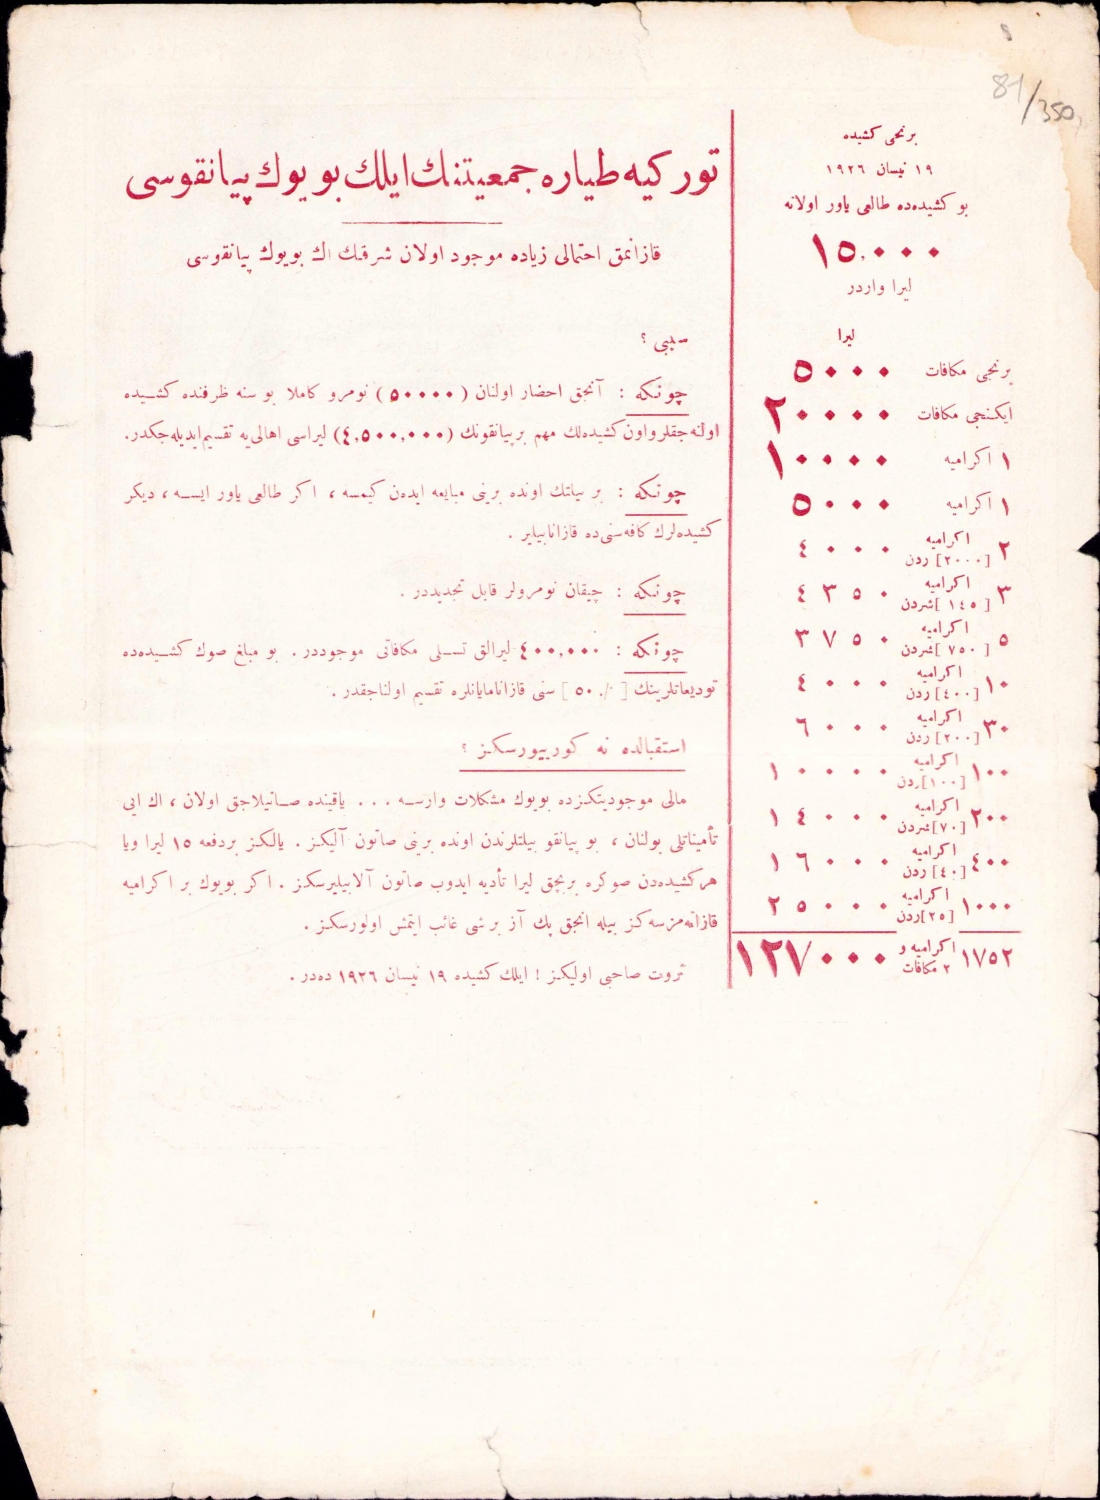 81/350
برنجی کشیده
١٩ نیسان ١٩٢٦
بو کشیده‌ده طالعی یاور اولانه
١٥,٠٠٠
لیرا واردر
لیرا
برنجی مکافات ٥٠٠٠
ایکنجی مکافات ٢٠٠٠٠
١ اکرامیه ١٠٠٠٠
١ اکرامیه ٥٠٠٠
٢ اکرامیه [٢٠٠٠] ردن ٤٠٠٠
٣ اکرامیه [١٤٥] شردن ٤٣٥٠
٥ اکرامیه [٧٥٠] شردن ٣٧٥٠
١٠ اکرامیه [٤٠٠] ردن ٤٠٠٠
٣٠ اکرامیه [٢٠٠] ردن ٦٠٠٠
١٠٠ اکرامیه [١٠٠] ردن ١٠٠٠٠
٢٠٠ اکرامیه [٧٠] شردن ١٤٠٠٠
٤٠٠ اکرامیه [٤٠] ردن ١٦٠٠٠
١٠٠٠ اکرامیه [٢٥] ردن ٢٥٠٠٠
١٧٥٢ اکرامیه و ٢ مکافات ١٢٧٠٠٠
تورکیه طیاره جمعیتنك ایلك بویوك پیانقوسی
قازانمق احتمالی زیاده موجود اولان شرقك اك بویوك پیانقوسی
سببی ؟
چونکه : آنجق احضار اولنان (٥٠٠٠٠) نومرو کاملا بو سنه ظرفنده کشیده
اولنه‌جقلر و اون کشیده‌لك مهم بر پیانقونك (٤,٥٠٠,٠٠٠) لیراسی اهالی‌یه تقسیم ایدیله‌جکدر.
چونکه : بر بیلتك اونده برینی مبایعه ایدن کیمسه ، اکر طالعی یاور ایسه ، دیکر
کشیده‌لرك کافه‌سنی‌ده قازانابیلیر .
چونکه : چیقان نومرولر قابل تجدیددر .
چونکه : ٤٠٠,٠٠٠ لیرالق تسلی مکافاتی موجوددر . بو مبلغ صوك کشیده‌ده
تودیعاتلرینك [ ٪ ٥٠ ] سنی قازانامایانلره تقسیم اولناجقدر .
استقبالده نه کورییورسکز ؟
مالی موجودیتکزده بویوك مشکلات وارسه ... یاقینده صاتیلاجق اولان ، اك ایی
تأمیناتلی بولنان ، بو پیانقو بیلتلرندن اونده برینی صاتون آلیکز . یالکز بردفعه ١٥ لیرا ویا
هر کشیده‌دن صوکره بربچق لیرا تأدیه ایدوب صاتون آلابیلیرسکز . اکر بویوك بر اکرامیه
قازانه‌مزسه‌کز بیله انجق پك آز برشی غائب ایتمش اولورسکز .
ثروت صاحبی اولیکز ! ایلك کشیده ١٩ نیسان ١٩٢٦ ده‌در .